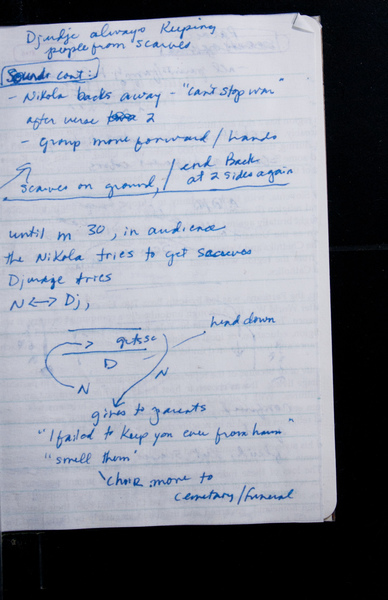 Djurdje always Keeping
people from scarves
Sounds cont:
- Nikola backs away - "can't stop war"
after verse 2
- Group move forward / hands
scarves on ground, / end Back
at 2 sides again
until m 30, in audience
the Nikola tries to get scarves
Djuradge tries
N <-> Dj,
head down
gets sc
D
N
N
gives to parents
"I failed to keep you ever from harm"
"smell them"
choir move to
cemetary/funeral